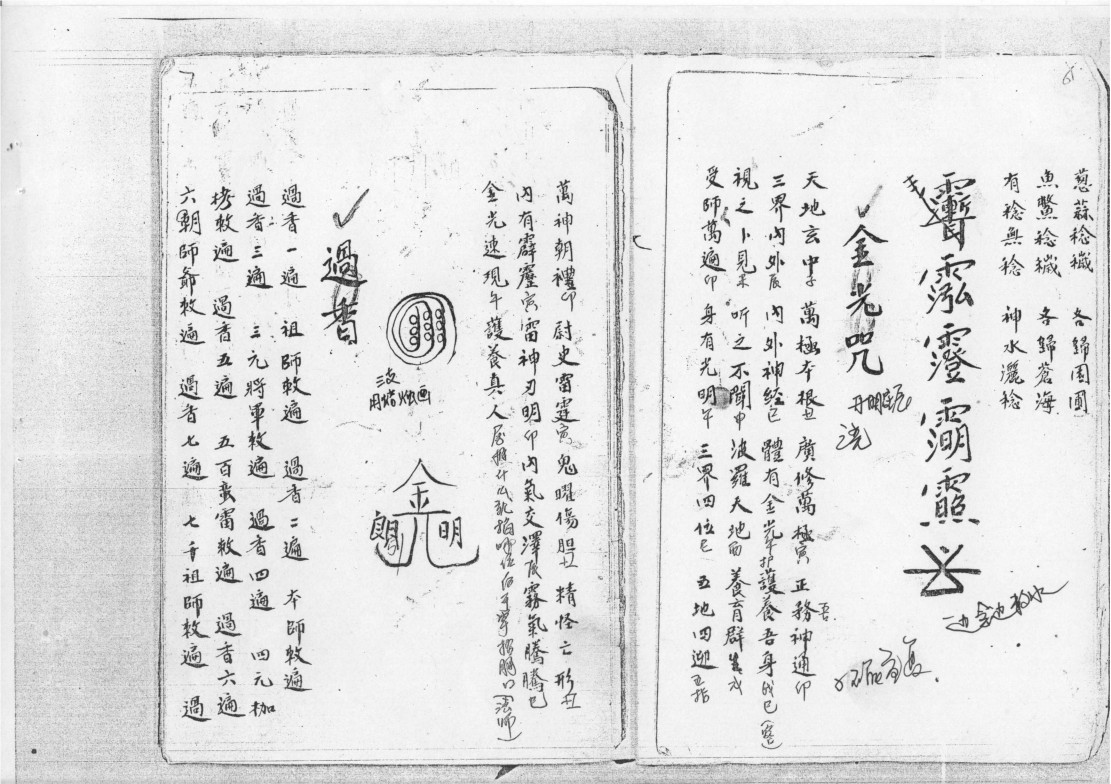 6
葱蒜稔穢 各歸園圃
魚鱉稔穢 各歸蒼海
有稔無稔 神水灑稔
金光咒
天地玄中子 萬極本根丑 廣修萬極寅 正務神通卯
吾
三界內外辰 內外神經巳 體有金光午 護養吾身戌巳
視之卜見未 听之不聞申 波羅天地酉 養育群生戌
受師萬遍卯 身有光明午 三界四位巳 五地四迎五指
7
萬神朝禮卯 尉史雷霆寅 鬼曜傷胆丑 精怪亡形丑
內有霹靂寅 雷神刃明卯 內氣交澤辰 霧氣騰騰巳
金光速現午 護養真人
三支
用指火畫画
金
朗
明
過香
過香一遍 祖師敕遍 過香二遍 本師敕遍
過香三遍 三元將軍敕遍 過香四遍 四元枷
拷敕遍 過香五遍 五百蛮雷敕遍 過香六遍
六朝師爺敕遍 過香七遍 七千祖師敕遍 過